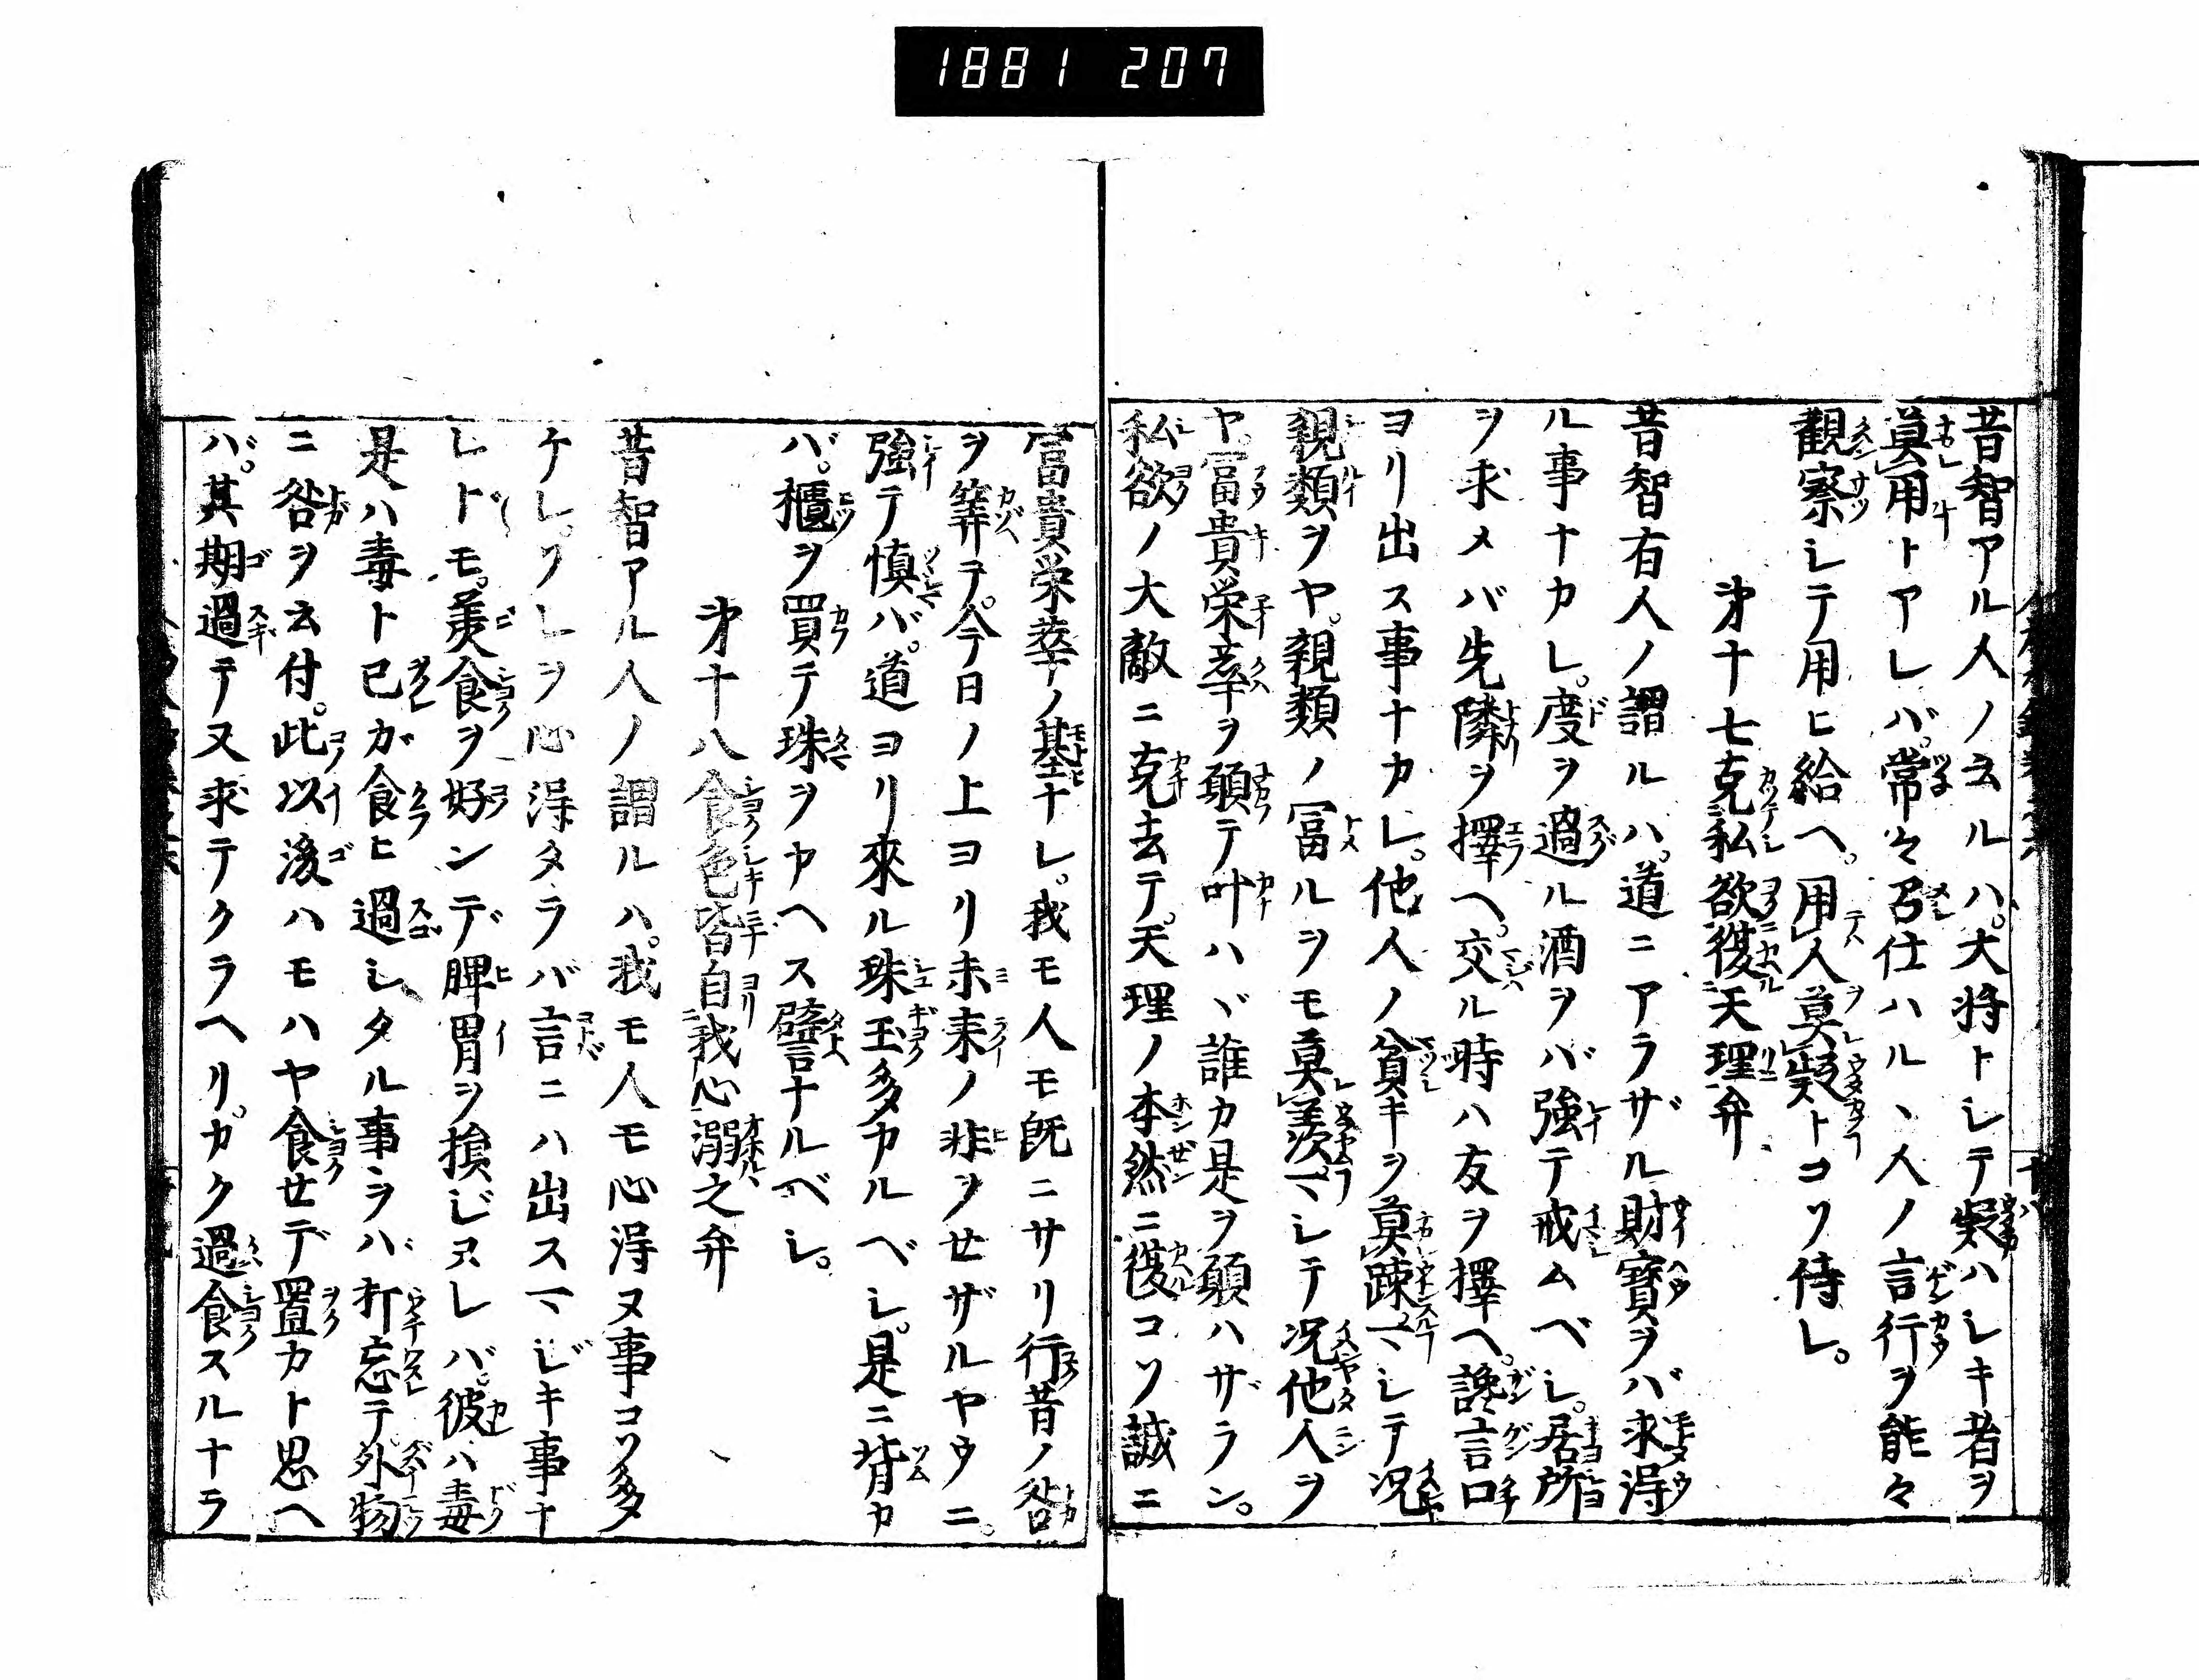 1881 207
昔智アル人ノ云ルハ。大将トシテ疑ハシキ者ヲ
莫用トアレバ。常々召仕ハルヽ人ノ言行ヲ能々
觀察シテ用ヒ給ヘ。用人莫疑トコソ侍レ。
第十七克私欲復天理弁
昔智有人ノ謂ルハ。道ニアラザル財寳ヲバ求得
ル事ナカレ。度ヲ過ル酒ヲバ強テ戒ムベシ。居所
ヲ求メバ先隣ヲ擇ヘ。交ル時ハ友ヲ擇ヘ。讒言口
ヨリ出ス事ナカレ。他人ノ貧キヲ莫踈マシテ况
親類ヲヤ。親類ノ冨ルヲモ莫羨マシテ况他人ヲ
ヤ。冨貴栄華ヲ願テ叶ハヾ誰カ是ヲ願ハザラン。
私欲ノ大敵ニ克去テ。天理ノ本然ニ復コソ誠ニ
冨貴栄華ノ基ナレ。我モ人モ既ニサリ行昔ノ咎
ヲ筭テ。今日ノ上ヨリ未来ノ非ヲセザルヤウニ。
強テ慎バ。道ヨリ來ル珠玉多カルベシ。是ニ背カ
バ。櫃ヲ買テ珠ヲカヘス譬ナルベシ。
第十八食色皆自我心溺之弁
昔智アル人ノ謂ルハ。我モ人モ心得ヌ事コソ多
ケレ。ソレヲ心得タラバ言ニハ出スマジキ事ナ
レドモ。美食ヲ好ンデ脾胃ヲ損ジヌレバ。彼ハ毒
是ハ毒ト已ガ食ヒ過シタル事ヲバ打忘テ。外物
ニ咎ヲ云付。此以後ハモハヤ食セデ置カト思ヘ
バ。其期過テ又求テクラヘリ。カク過食スルナラ